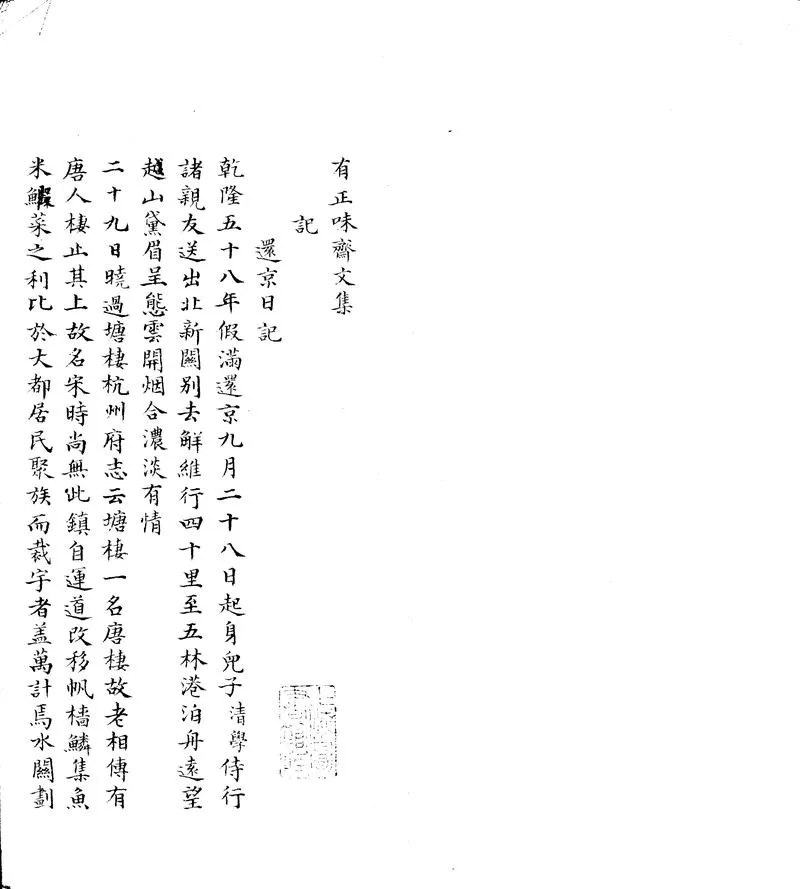 有正味齋文集
記
還京日記
乾隆五十八年假滿還京九月二十八日起身兒子清學侍行
諸親友送出北新關别去鮮維行四十里至五林港泊舟遠望
越山黛眉呈態雲開烟合濃淡有情
二十九日曉過塘棲杭州府志云塘棲一名唐棲故老相傳有
唐人棲止其上故名宋時尚無此鎮自運道改移帆檣鱗集魚
米鰕菜之利比於大都居民聚族而裁宇者盖萬計焉水關劃